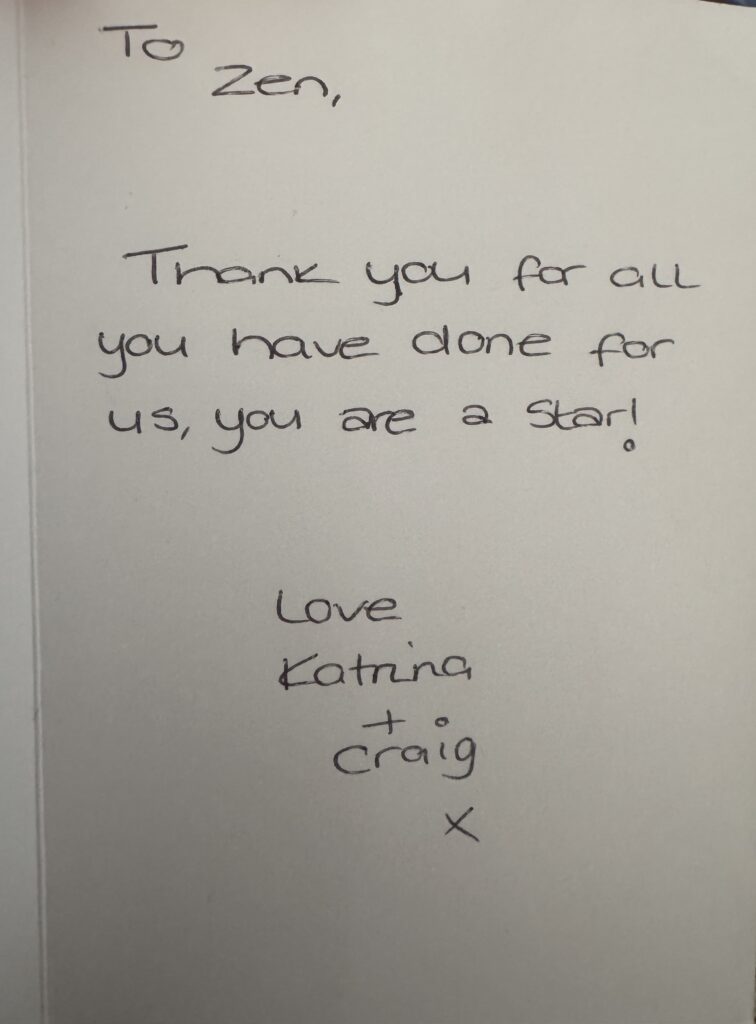 To
Zen,
Thank you for all
you have done for
us, you are a star!
Love
Katrina
+
Craig
x